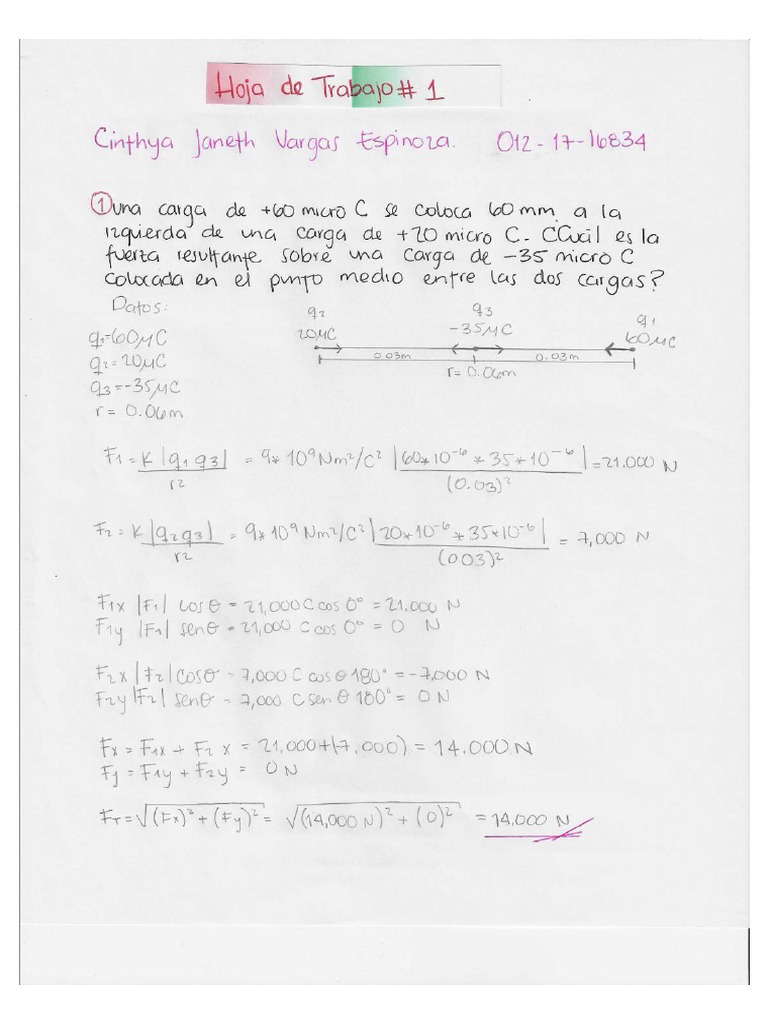 Hoja de Trabajo # 1
Cinthya Janeth Vargas Espinoza. 012-17-16834
① una carga de +60 micro C se coloca 60 mm a la
izquierda de una carga de +20 micro C. CCuál es la
fuerza resultante sobre una carga de -35 micro C
colocada en el punto medio entre las dos cargas?
Datos:
q₁=60μC
q₂=20μC
q₃=-35μC
r= 0.06m
q₂ q₃ q₁
20μC -35μC 60μC
0.03m 0.03m
r= 0.06m
F₁ = K|q₁q₃| / r² = 9*10⁹Nm²/C² |60*10⁻⁶ * 35*10⁻⁶| / (0.03)² = 21.000 N
F₂ = K|q₂q₃| / r² = 9*10⁹Nm²/C² |20*10⁻⁶ * 35*10⁻⁶| / (003)² = 7,000 N
F₁x |F₁| cosθ = 21,000 C cos 0° = 21.000 N
F₁y |F₁| senθ = 21,000 C cos 0° = 0 N
F₂x |F₂| cosθ = 7,000 C cosθ 180° = -7,000 N
F₂y |F₂| senθ = 7,000 C senθ 180° = 0 N
Fx = F₁x + F₂x = 21,000+(7,000) = 14.000 N
Fy = F₁y + F₂y = 0 N
Fr = √(Fx)² + (Fy)² = √(14,000 N)² + (0)² = 14.000 N